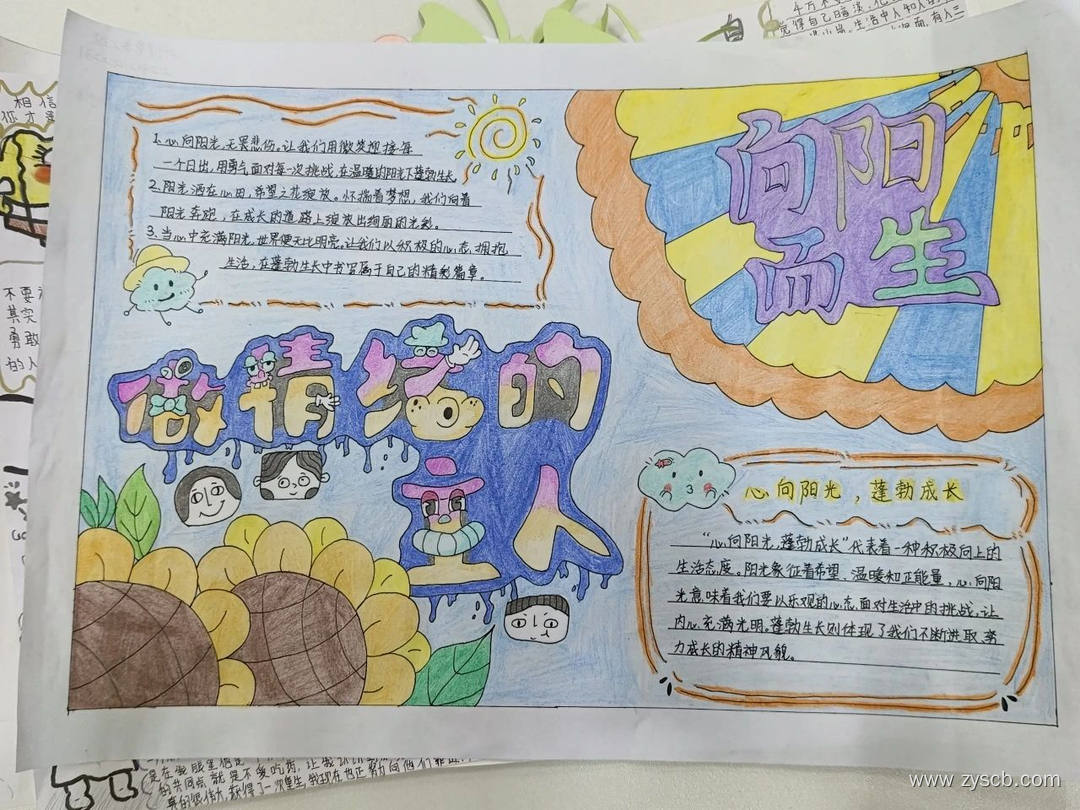 1. 心向阳光,无畏悲伤。让我们用微笑迎接每
一个日出,用勇气面对每一次挑战,在温暖的阳光下蓬勃生长
2. 阳光洒在心田,希望之花绽放。怀揣着梦想,我们向着
阳光奔跑,在成长的道路上绽放出绚丽的光彩。
3. 当心中充满阳光,世界便无比明亮。让我们以积极的心态,拥抱
生活,在蓬勃生长中书写属于自己的精彩篇章。
向阳
而生
做情绪的
主人
心向阳光,蓬勃成长
“心向阳光,蓬勃成长”代表着一种积极向上的
生活态度。阳光象征着希望、温暖和正能量,心向阳
光意味着我们要以乐观的心态面对生活中的挑战,让
内心充满光明。蓬勃生长则体现了我们不断进取、努
力成长的精神风貌。
相信
你才是
不要
其实
勇敢
的人
觉得自己暗淡,化
的共同点就是不爱吃肉,让我
www.zyscb.com